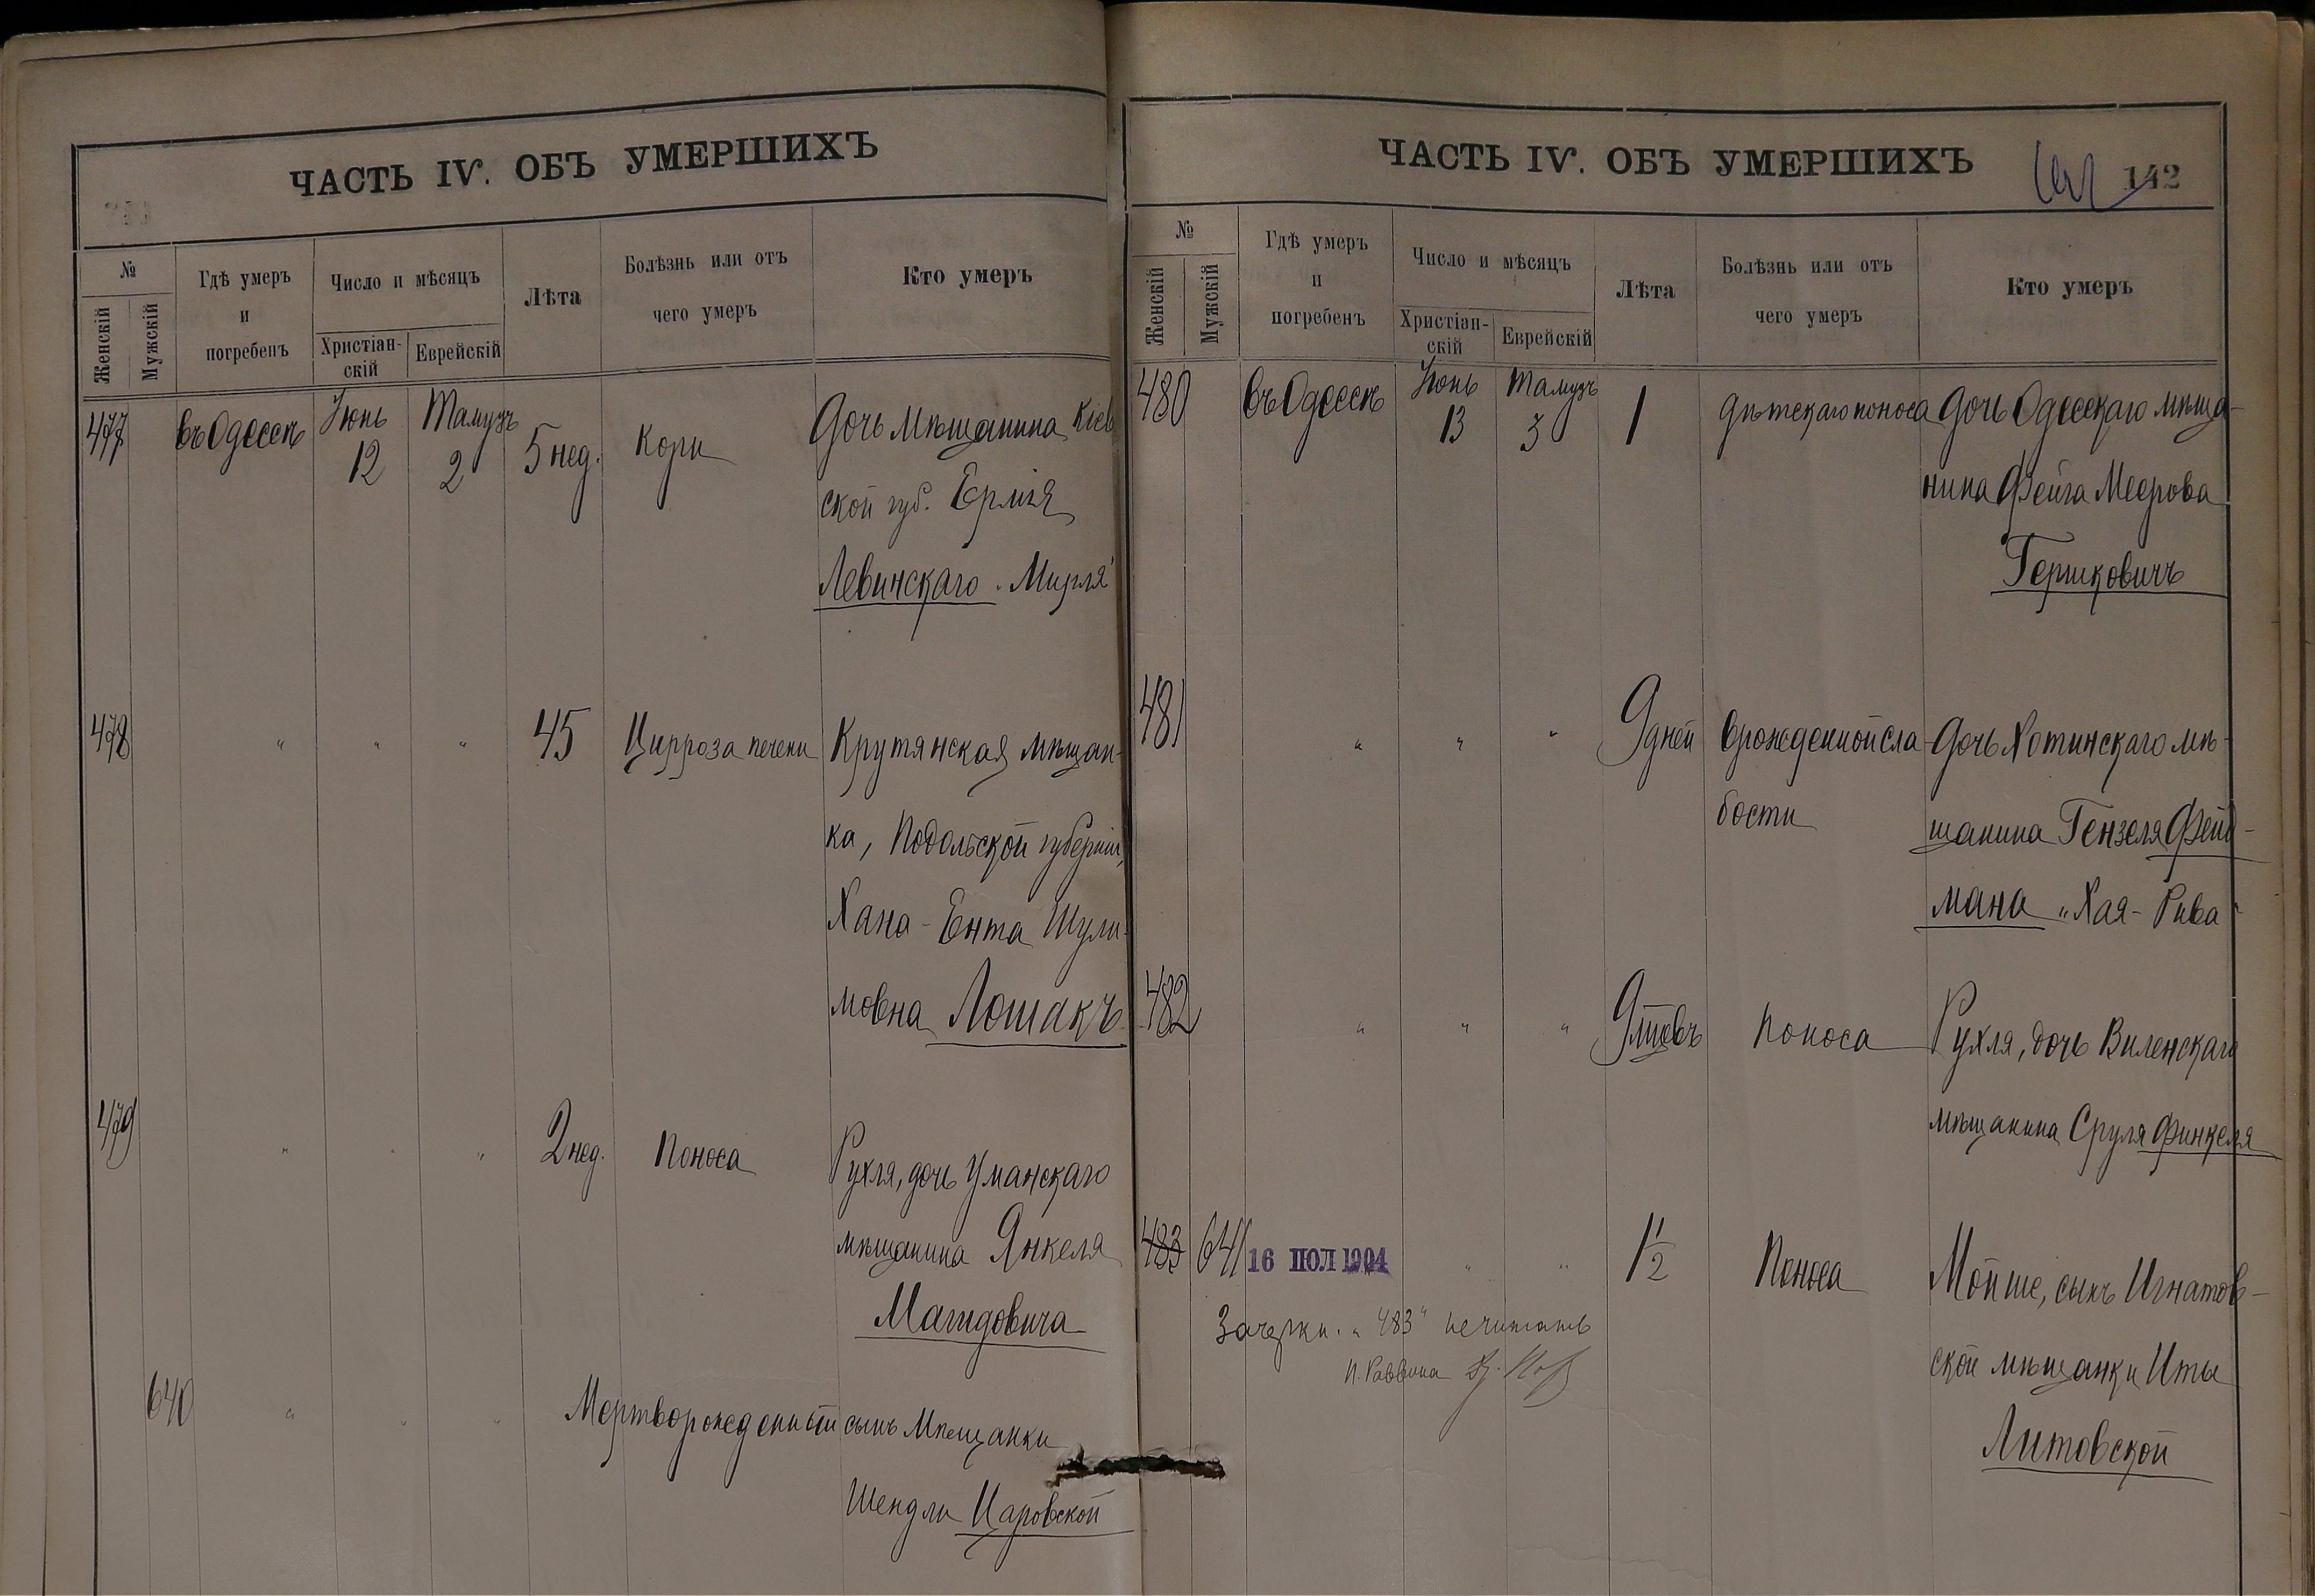 ЧАСТЬ IV. ОБЪ УМЕРШИХЪ
№
Женскій
Мужскій
Гдѣ умеръ
и
погребенъ
Число и мѣсяцъ
Христіан-
скій
Еврейскій
Лѣта
Болѣзнь или отъ
чего умеръ
Кто умеръ
477 въ Одессѣ Іюнь 12 Тамузъ 2 5 нед. Кори Дочь мѣщанина Кіев
ской губ.
Левинскаго. Мирля
478 " " " 45 Цирроза печени Крутянская мѣщан-
ка, Подольской губерніи,
Хана-Ента Шули-
мовна Лошакъ
479 " " " 2 нед. Поноса Рухля, дочь Уманскаго
мѣщанина Янкеля
Магидовича
640 " " " Мертворожденный сынъ мѣщанки
Шендли Царовской
ЧАСТЬ IV. ОБЪ УМЕРШИХЪ
142
№
Женскій
Мужскій
Гдѣ умеръ
и
погребенъ
Число и мѣсяцъ
Христіан-
скій
Еврейскій
Лѣта
Болѣзнь или отъ
чего умеръ
Кто умеръ
480 въ Одессѣ Іюнь 13 Тамузъ 3 1 Дѣтскаго поноса Дочь Одесскаго мѣща-
нина Фейга Меерова
Гершковичъ
481 " " " 9 дней Врожденной сла- Дочь Хотинскаго мѣ-
бости щанина Гензеля Фельд-
мана „Хая-Рива"
482 " " " Поноса Рухля, дочь Виленскаго
мѣщанина Сруля Финкеля
483 641 16 ІЮЛ 1904 " " 1 1/2 Поноса Мойше, сынъ Игнатов-
Зачеркн. „483" не читать
И. Раввина
ской мѣщанки Иты
Литовской